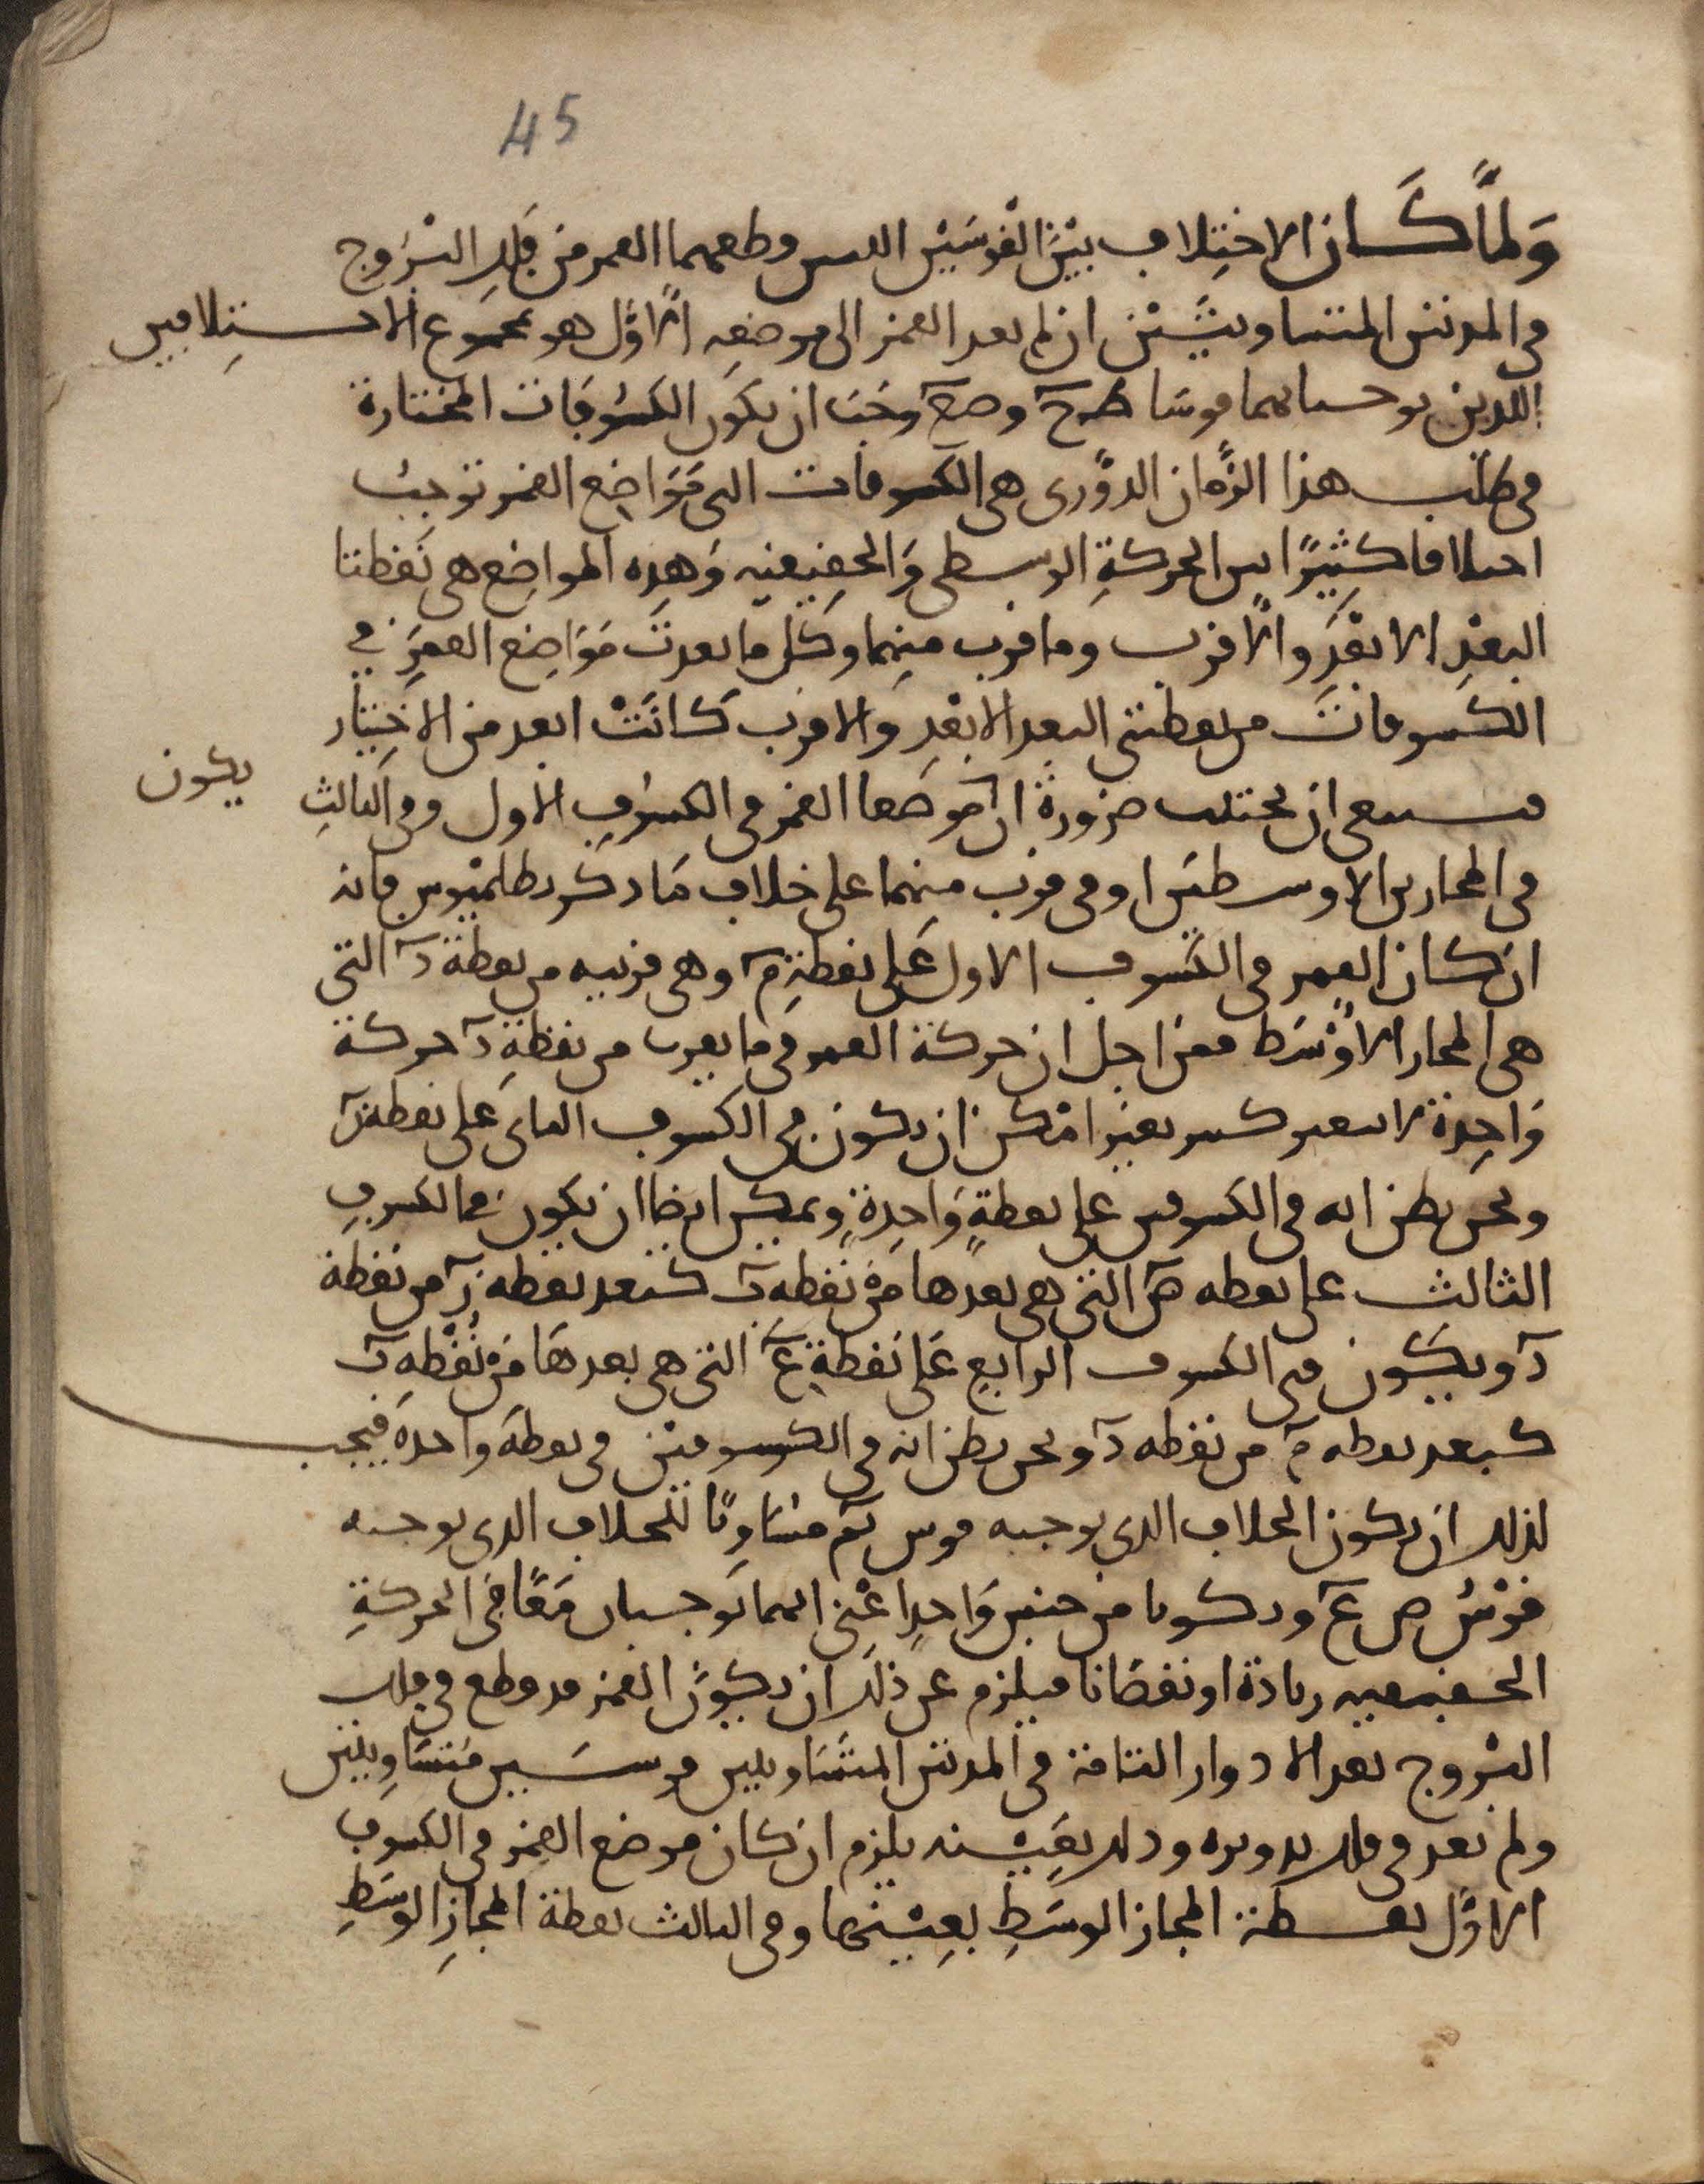 45
وَلمَّا كَان الاختِلاف بَيْنَ القوسَيْن اللتين قطعهما القمر من فَلك البُرُوج
في المدتين المتساويتَيْن ان لم يعد القمر الى موضعِه الأوّل هو مجموع الاختِلافين
اللذين توجبانهما قوسَا وجَبَ ان يكوَن الكسُوفَات المختارة
في طلَب هذا الزَّمان الدوّرى هى الكسوفات التى مَوَاضِع القمر توجبُ
اختلافا كثِيرًا بين الحركةِ الوسطى وَالحقِيقيه وَهذِه المواضِع هى نَقطتا
البعْدِ الابعَد والأقرب وما قرب مِنهما وكل ما بعدتَ مَوَاضِع القمَرِ في
الكسوفات من نقطتى البعد الابْعدِ والاقرب كانَتْ ابعد من الاختِيار
فينبغى ان يجتنب ضرورة ان يكون مَوضعا القمر فى الكسُوفِ الأول وفى الثالثِ
فى المجازين الاوسطيَن او فى قرب مِنهما على خلاف مَا ذكر بطلميُوس فانه
ان كان القمر فى الكسُوف الاول عَلى نقطةِ م وهى قريبه من نقطة د التى
هى المجاز الأوْسَط فمن اجل ان حركة القمر فى ما يقرب من نقطةِ د حركة
وَاحِدة لا تتغير كبير تغير امْكن ان يكون فى الكسوف الثانى عَلى نقطة ز
ونحن نظن انه فى الكسوفين على نقطةٍ وَاحِدةٍ ويمكن ايضا ان يكون فى الكسوفِ
الثالث على نقطه ص التى هى بعدها من نقطه ب كبعد نقطه ز من نقطة
د ويكون فى الكسوف الرابع عَلى نقطةِ ع التى هى بعدهَا من نُقْطهِ ب
كبعد نقطه م من نقطه د ونحن نظن انه فى الكسوفين فى نقطة واحدة فيجب
لذلك ان يكون الخلاف الذى توجبه قوس ز م مسَاويًا للخلاف الذى توجبه
قوْسُ ص ع ويكونا من جنسٍ وَاحدٍ اعْنى انهما يُوجبان مَعًا فى الحركةِ
الحقيقيه زيادة او نقصَانا فيلزم عن ذلك ان يكون القمر قد قطع فى فلك
البُروج بعد الادوار التامة فى المدتين المتسَاويتين قوسَين مُتسَاويتين
ولم يعد فى فلك تدويره وذلك بعَيْنه يلزم ان كان موضع القمر فى الكسوف
الأوّل نقطة المجاز الوسَطِ بعِيْنها وفى الثالث نقطة المجازِ الوسَطِ